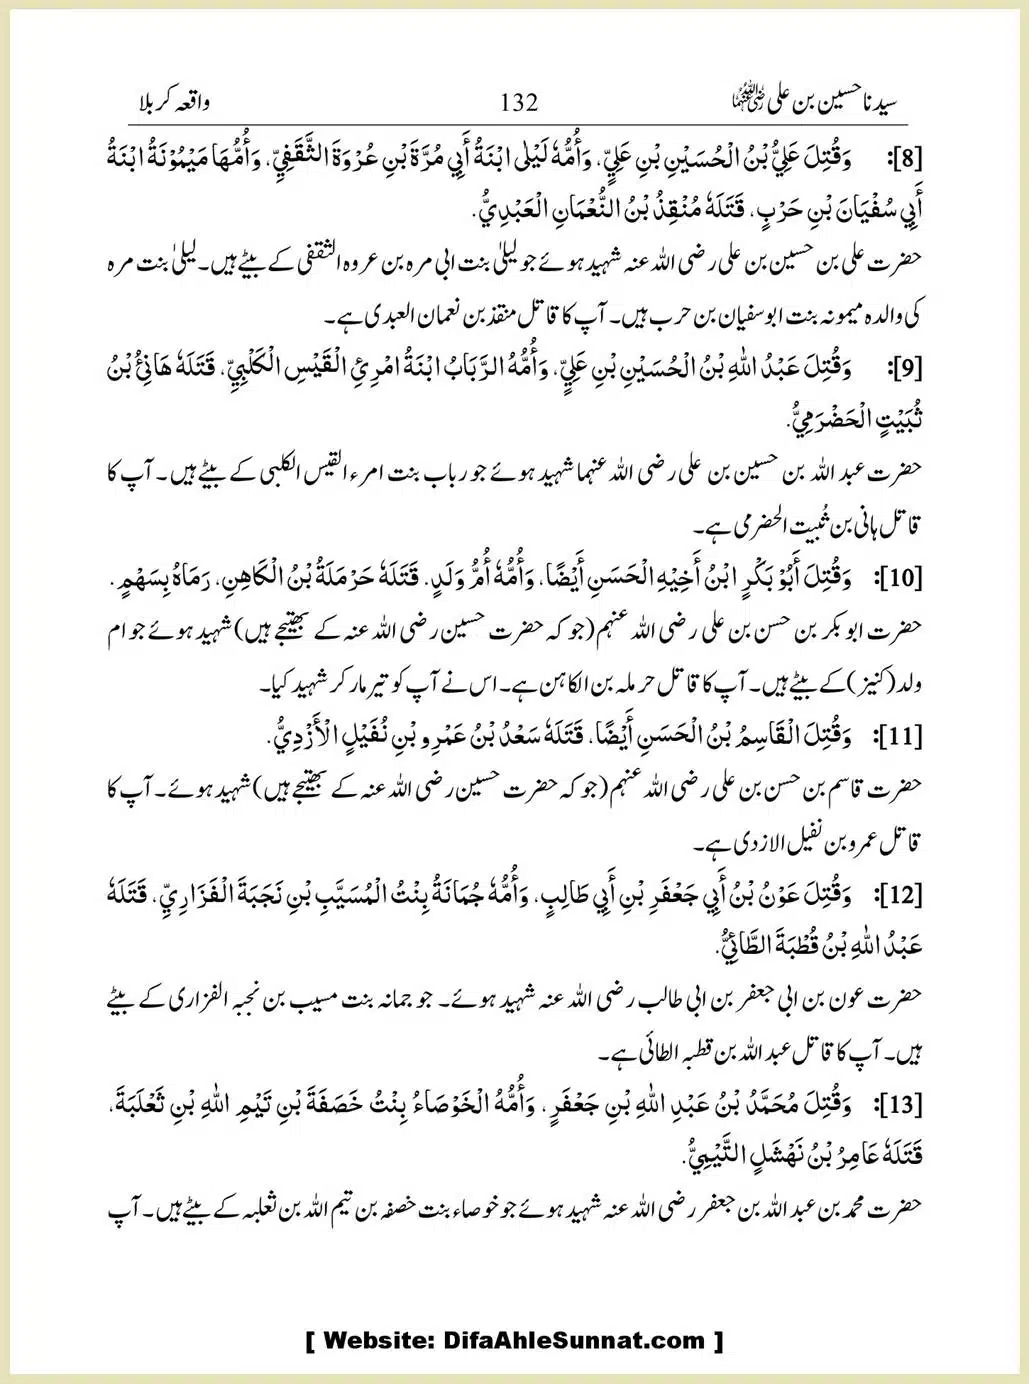 سیدنا حسین بن علی رضی اللہ عنہما 132 واقعہ کربلا
[8]: وَقُتِلَ عَلِيُّ بْنُ الْحُسَيْنِ بْنِ عَلِيٍّ، وَأُمُّهٗ لَيْلٰى ابْنَةُ أَبِي مُرَّةَ بْنِ عُرْوَةَ الثَّقَفِيِّ، وَأُمُّهَا مَيْمُوْنَةُ ابْنَةُ
أَبِي سُفْيَانَ بْنِ حَرْبٍ، قَتَلَهٗ مُنْقِذُ بْنُ النُّعْمَانِ الْعَبْدِيُّ.
حضرت علی بن حسین بن علی رضی اللہ عنہ شہید ہوئے جو لیلیٰ بنت ابی مرہ بن عروہ الثقفی کے بیٹے ہیں۔ لیلیٰ بنت مرہ
کی والدہ میمونہ بنت ابوسفیان بن حرب ہیں۔ آپ کا قاتل منقذ بن نعمان العبدی ہے۔
[9]: وَقُتِلَ عَبْدُ اللّٰهِ بْنُ الْحُسَيْنِ بْنِ عَلِيٍّ، وَأُمُّهُ الرَّبَابُ ابْنَةُ امْرِئِ الْقَيْسِ الْكَلْبِيِّ، قَتَلَهٗ هَانِئُ بْنُ
ثُبَيْتٍ الْحَضْرَمِيُّ.
حضرت عبد اللہ بن حسین بن علی رضی اللہ عنہما شہید ہوئے جو رباب بنت امرء القیس الکلبی کے بیٹے ہیں۔ آپ کا
قاتل ہانی بن ثُبیت الحضرمی ہے۔
[10]: وَقُتِلَ أَبُوْ بَكْرٍ ابْنُ أَخِيْهِ الْحَسَنِ أَيْضًا، وَأُمُّهٗ أُمُّ وَلَدٍ. قَتَلَهٗ حَرْمَلَةُ بْنُ الْكَاهِنِ، رَمَاهُ بِسَهْمٍ.
حضرت ابو بکر بن حسن بن علی رضی اللہ عنہم (جو کہ حضرت حسین رضی اللہ عنہ کے بھتیجے ہیں) شہید ہوئے جو ام
ولد (کنیز) کے بیٹے ہیں۔ آپ کا قاتل حرملہ بن الکاہن ہے۔ اس نے آپ کو تیر مار کر شہید کیا۔
[11]: وَقُتِلَ الْقَاسِمُ بْنُ الْحَسَنِ أَيْضًا، قَتَلَهٗ سَعْدُ بْنُ عَمْرِو بْنِ نُفَيْلٍ الْأَزْدِيُّ.
حضرت قاسم بن حسن بن علی رضی اللہ عنہم (جو کہ حضرت حسین رضی اللہ عنہ کے بھتیجے ہیں) شہید ہوئے۔ آپ کا
قاتل عمرو بن نفیل الازدی ہے۔
[12]: وَقُتِلَ عَوْنُ بْنُ أَبِي جَعْفَرِ بْنِ أَبِي طَالِبٍ، وَأُمُّهٗ جُمَانَةُ بِنْتُ الْمُسَيَّبِ بْنِ نَجَبَةَ الْفَزَارِيِّ، قَتَلَهٗ
عَبْدُ اللّٰهِ بْنُ قُطْبَةَ الطَّائِيُّ.
حضرت عون بن ابی جعفر بن ابی طالب رضی اللہ عنہ شہید ہوئے۔ جو جمانہ بنت مسیب بن نجبہ الفزاری کے بیٹے
ہیں۔ آپ کا قاتل عبد اللہ بن قطبہ الطائی ہے۔
[13]: وَقُتِلَ مُحَمَّدُ بْنُ عَبْدِ اللّٰهِ بْنِ جَعْفَرٍ، وَأُمُّهُ الْخَوْصَاءُ بِنْتُ خَصَفَةَ بْنِ تَيْمِ اللّٰهِ بْنِ ثَعْلَبَةَ،
قَتَلَهٗ عَامِرُ بْنُ نَهْشَلٍ التَّيْمِيُّ.
حضرت محمد بن عبد اللہ بن جعفر رضی اللہ عنہ شہید ہوئے جو خوصاء بنت خصفہ بن تیم اللہ بن ثعلبہ کے بیٹے ہیں۔ آپ
[ Website: DifaAhleSunnat.com ]